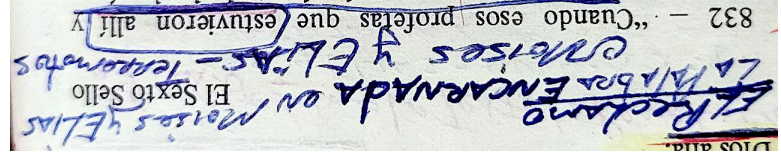 Dios
El Reclamo
El Sexto Sello
LA PALABRA ENCARNADA en Moises y ELIAS
Moises y ELIAS - Terremotos
832 – “Cuando esos profetas que estuvieron allí y